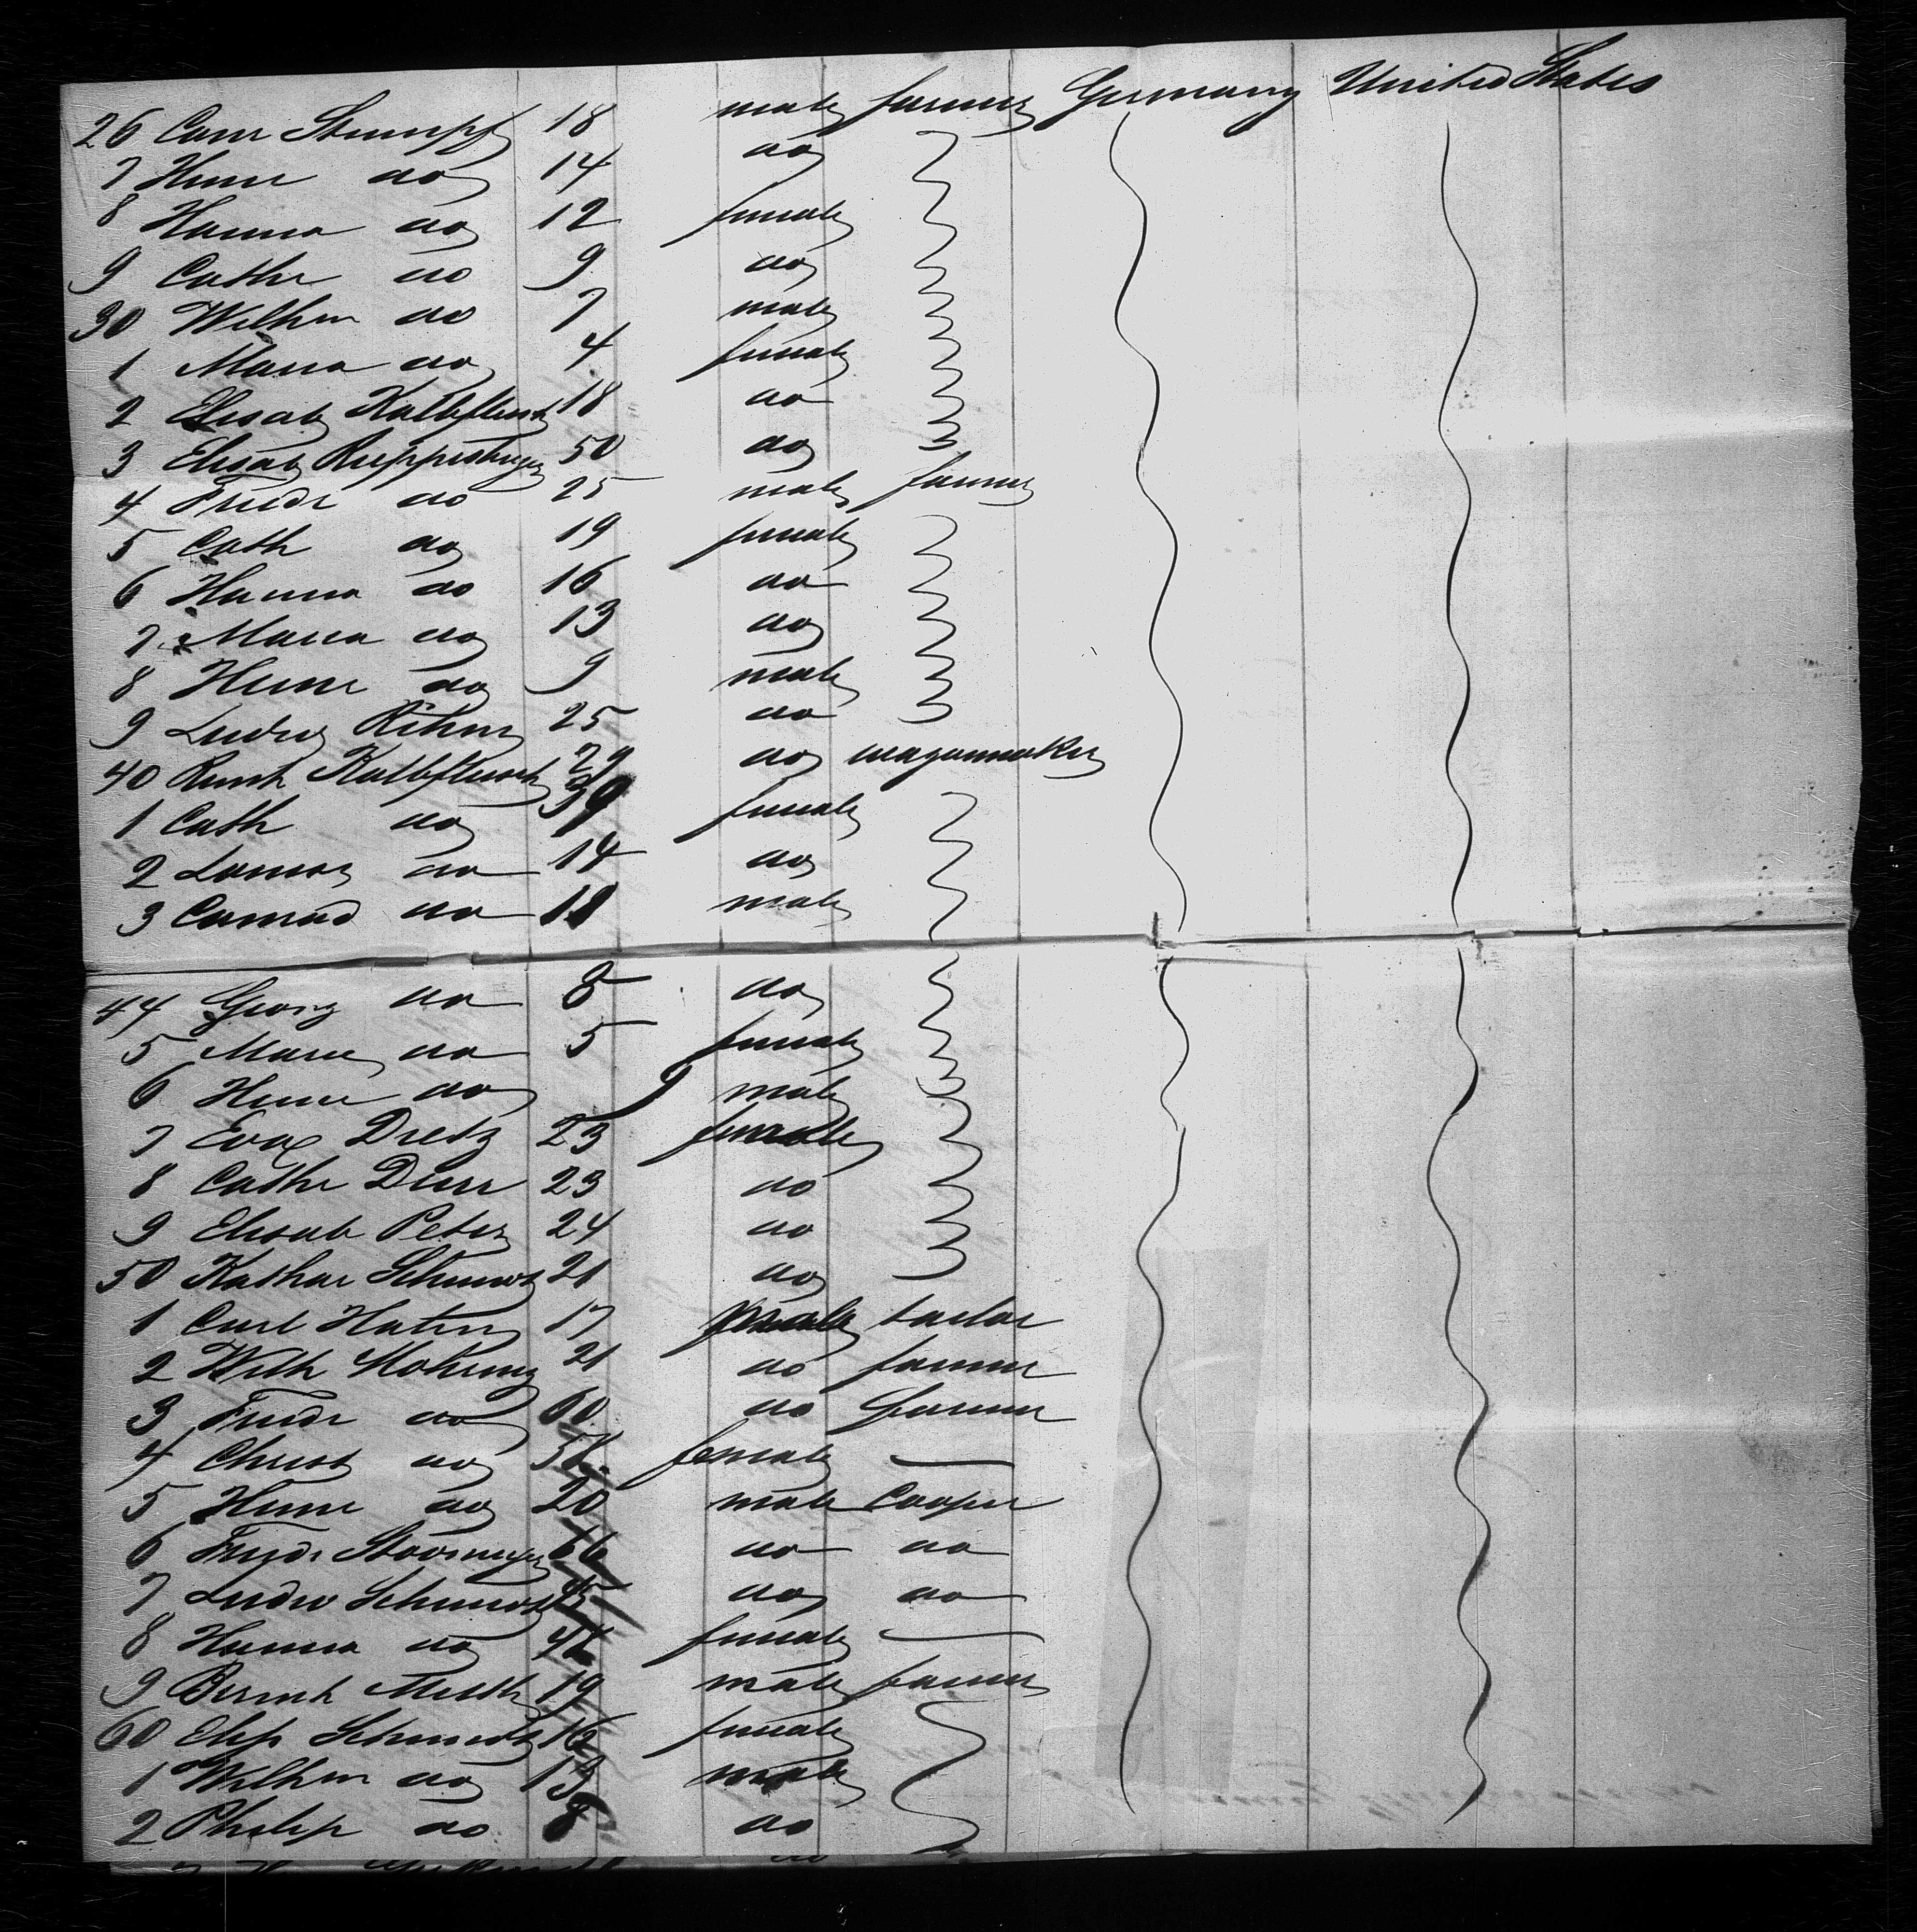 26 Conr Stumpf 18 male farmer Germany United States
7 Henr do 14 do
8 Hanna do 12 female
9 Cathr do 9 do
30 Wilhm do 7 male
1 Maria do 4 female
2 Elisab Kalbfleisch 18 do
3 Elisab 50 do
4 Friedr do 25 male farmer
5 Cath do 19 female
6 Hanna do 16 do
7 Maria do 13 do
8 Henr do 9 male
9 Ludwig 25 do
40 Kalbfleisch 29 do wagonmaker
1 Cath do 39 female
2 do 14 do
3 Conrad do male
44 Georg do 8 do
5 Marie do 5 female
6 Henr do 9 male
7 Eva Dietz 23 female
8 Cathr Durr 23 do
9 Elisab Peter 24 do
50 Kathar Schmidt 21 do
1 Carl 17 male tailor
2 Wilh 21 do farmer
3 Friedr do 60 do farmer
4 Christ do 58 female —
5 Henr do 20 male Cooper
6 Friedr 66 do do
7 Ludw Schmidt 45 do do
8 Hanna do female —
9 19 male farmer
60 Elis Schmidt 16 female
1 Wilhm do 13 male
2 Philip do 8 do